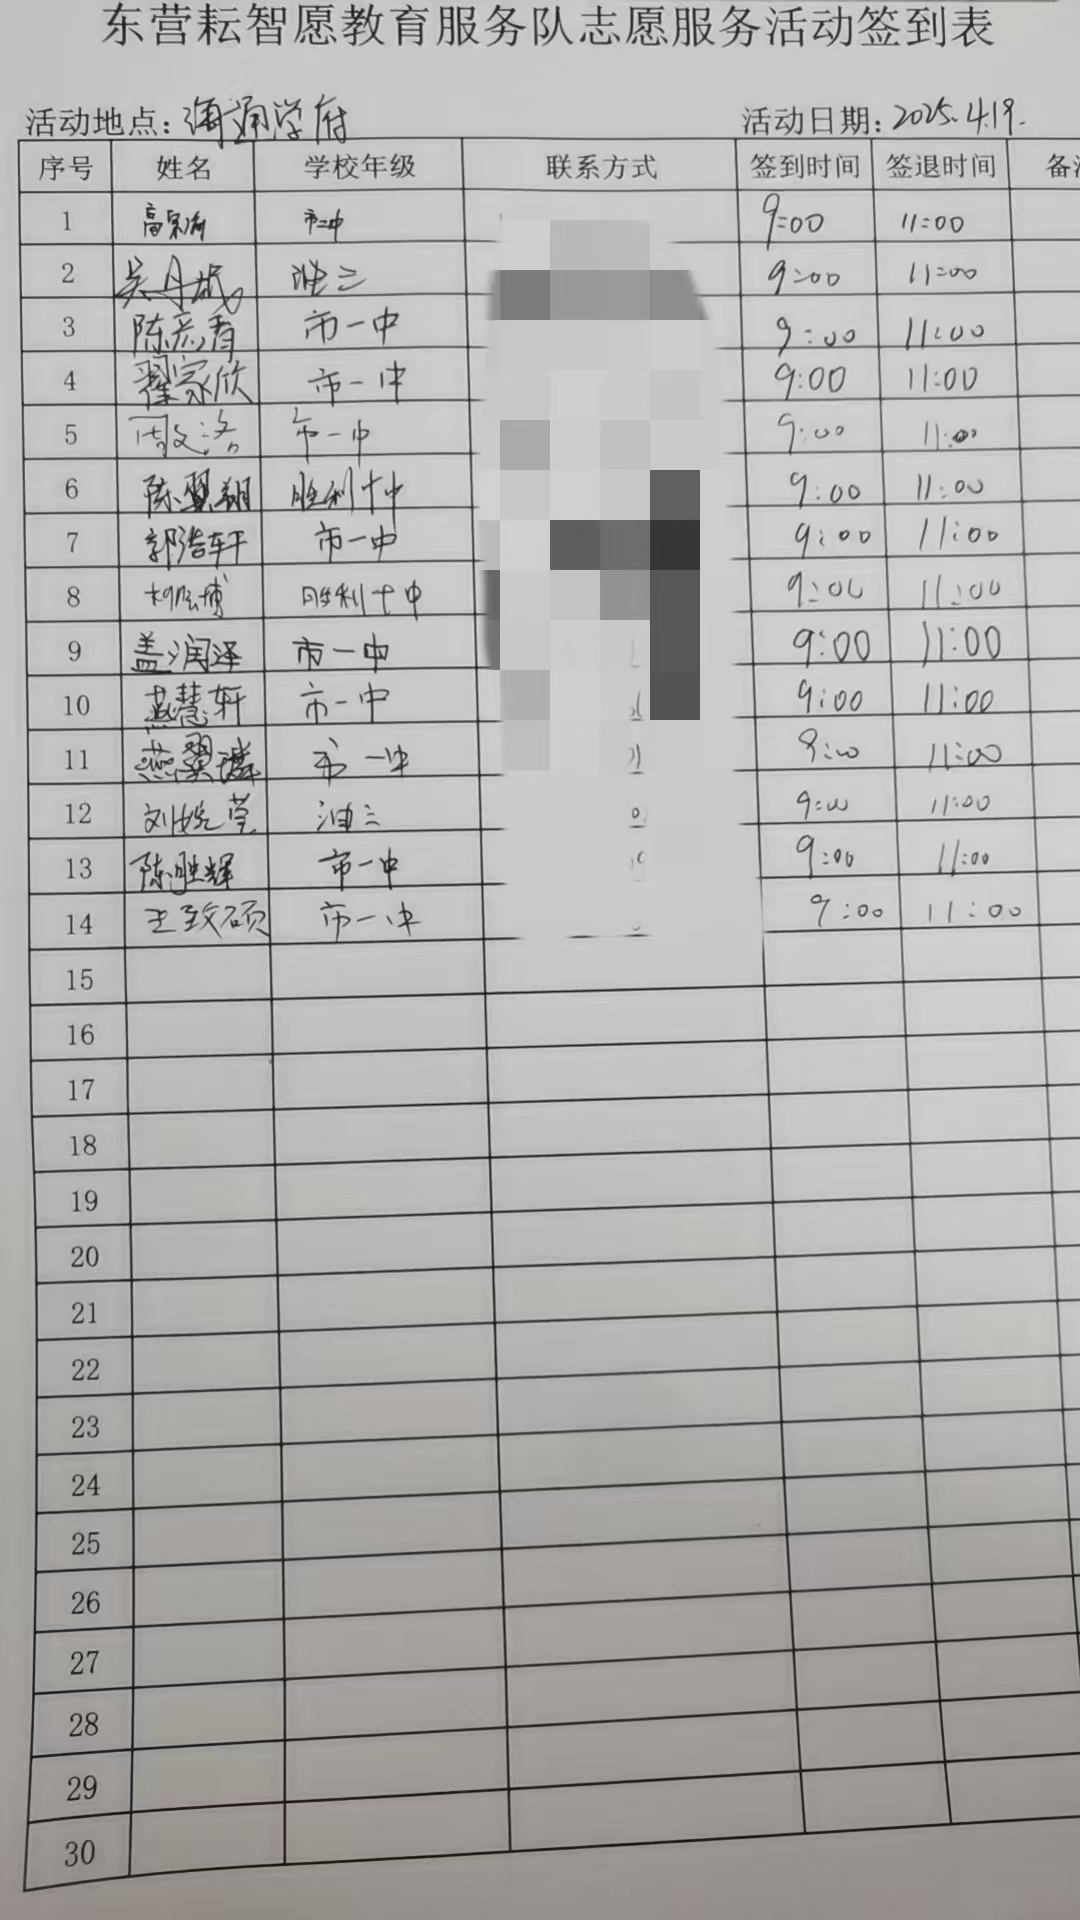 东营耘智愿教育服务队志愿服务活动签到表
活动地点：海通学府 活动日期：2025.4.19.
序号 姓名 学校年级 联系方式 签到时间 签退时间 备
1 高 市二中 9:00 11:00
2 吴丹 油三 9:00 11:00
3 陈彦肖 市一中 9:00 11:00
4 翟家欣 市一中 9:00 11:00
5 周文洁 市一中 9:00 11:00
6 陈翼翔 胜利十中 9:00 11:00
7 郭浩轩 市一中 9:00 11:00
8 博 胜利十中 9:00 11:00
9 盖润泽 市一中 9:00 11:00
10 燕慧轩 市一中 9:00 11:00
11 燕翼璘 市一中 9:00 11:00
12 刘婉莹 油三 9:00 11:00
13 陈胜辉 市一中 9:00 11:00
14 王致硕 市一中 9:00 11:00
15
16
17
18
19
20
21
22
23
24
25
26
27
28
29
30